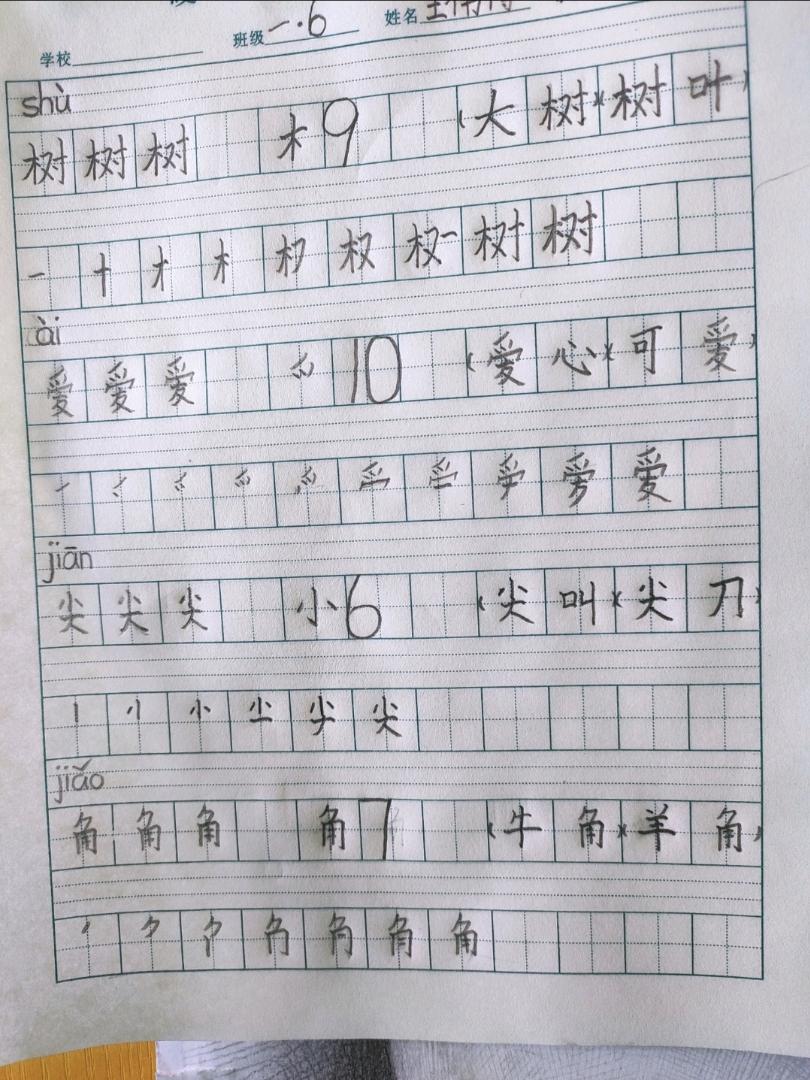 学校 班级 一.6 姓名
shù
树 树 树 木 9 (大 树)(树 叶)
一 十 才 木 权 权 权一 树 树
ài
爱 爱 爱 爫 10 (爱 心)(可 爱)
爱
jiān
尖 尖 尖 小 6 (尖 叫)(尖 刀)
丨 小 尖
jiǎo
角 角 角 角 7 (牛 角)(羊 角)
丿 ⺈ 角 角